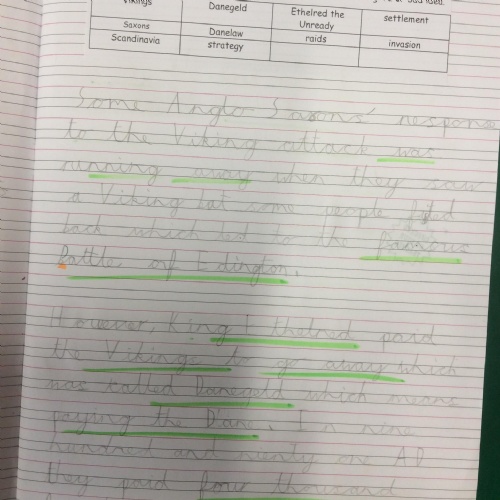 Vikings Danegeld Ethelred the Unready settlement
Saxons Danelaw raids invasion
Scandinavia strategy
Some Anglo Saxons' response
to the Viking attack was
running away when they saw
a Viking but some people
back which led to the famous
Battle of Edington.
However, King Ethelred paid
the Vikings to go away which
was called Danegeld which means
paying the Dane. In nine
hundred and ninty one AD
they paid four thousand